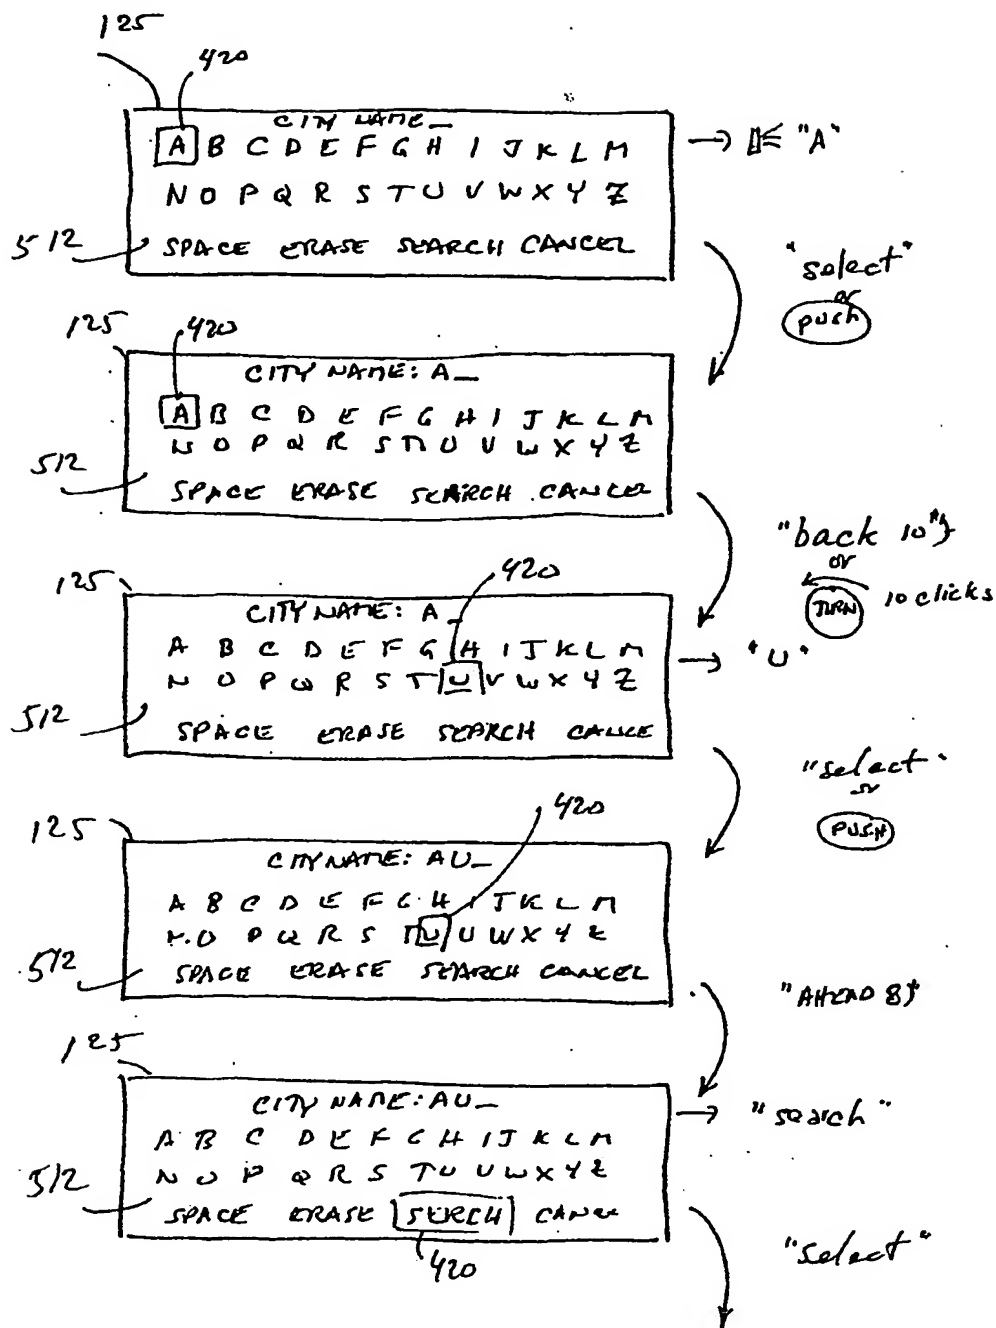 125
420
CITY NAME_
A B C D E F G H I J K L M
→ "A"
N O P Q R S T U V W X Y Z
512
SPACE ERASE SEARCH CANCEL
"select"
or
PUSH
125
420
CITY NAME: A_
A B C D E F G H I J K L M
N O P Q R S T U V W X Y Z
512
SPACE ERASE SEARCH CANCEL
"back 10"
or
TURN 10 clicks
125
420
CITY NAME: A_
A B C D E F G H I J K L M
→ "U"
N O P Q R S T U V W X Y Z
512
SPACE ERASE SEARCH CANCE
"select"
or
PUSH
125
420
CITY NAME: AU_
A B C D E F G H I J K L M
N O P Q R S T U U W X Y Z
512
SPACE ERASE SEARCH CANCEL
"AHEAD 8"
125
CITY NAME: AU_
→ "search"
A B C D E F G H I J K L M
N O P Q R S T U U W X Y Z
512
SPACE ERASE SERCH CANCE
420
"select"